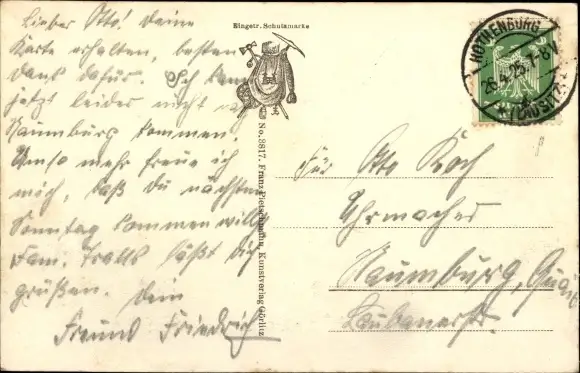 Lieber Otto! Deine
Karte erhalten, besten
Dank dafür. Ich kann
jetzt leider nicht n
Naumburg kommen.
Umso mehr freue ich
mich, daß Du nächsten
Sonntag kommen willst
Fam. läßt Dich
grüßen. Dein
Freund Friedrich
Eingetr. Schutzmarke
No. 3817. Franz Pietschmann, Kunstverlag Görlitz
ROTHENBURG
25 7-8V
(LAUSITZ)
Für Otto Koch
Uhrmacher
Naumburg,
Laubanerstr.